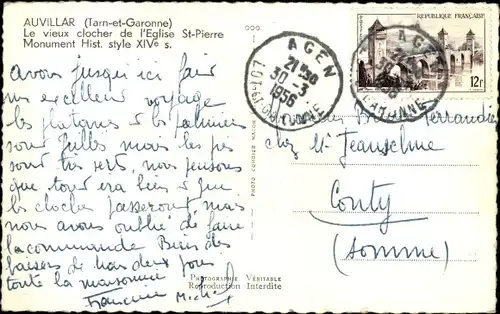 AUVILLAR (Tarn-et-Garonne)
Le vieux clocher de l'Eglise St-Pierre
Monument Hist. style XIVᵉ s.
avons jusqu'ici fait
un excellent voyage
les platanes et les palmiers
sont mais les
sont très verts, nous pensons
que tout ira bien et que
les cloches passeront, mais
nous avons oublié de faire
la commande Bien des
baisers de nous deux pour
toute la maisonnée
Francine Michel
AGEN
21H30
30-3
1956
LOT-ET-GARONNE
REPUBLIQUE FRANÇAISE
12F
AGEN
GARONNE
Ferrandier
chez Mr Jeanselme
Conty
(Somme)
PHOTOGRAPHIE VÉRITABLE
Reproduction Interdite